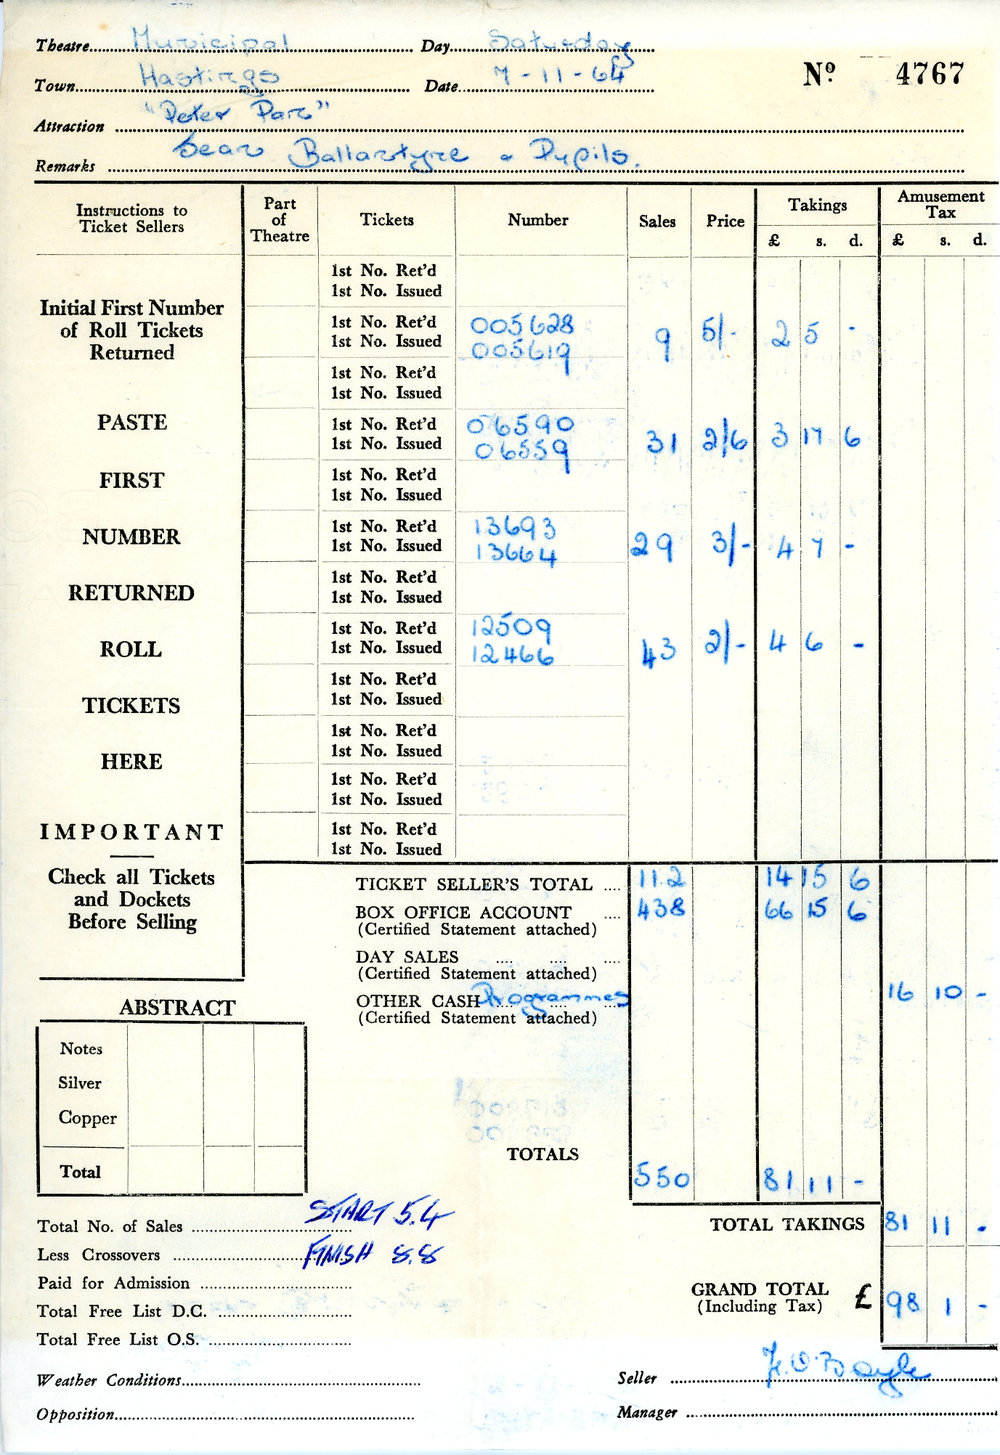 Theatre Municipal Day Saturday
Town Hastings Date 7-11-64 Nº 4767
Attraction "Peter Pan"
Remarks Sean Ballantyne & Pupils.
Instructions to Ticket Sellers Part of Theatre Tickets Number Sales Price Takings £ s. d. Amusement Tax £ s. d.
1st No. Ret'd
1st No. Issued
Initial First Number
of Roll Tickets
Returned
1st No. Ret'd 005628
1st No. Issued 005619 9 5/- 2 5 -
1st No. Ret'd
1st No. Issued
PASTE
1st No. Ret'd 06590
1st No. Issued 06559 31 2/6 3 17 6
FIRST
1st No. Ret'd
1st No. Issued
NUMBER
1st No. Ret'd 13693
1st No. Issued 13664 29 3/- 4 7 -
RETURNED
1st No. Ret'd
1st No. Issued
ROLL
1st No. Ret'd 12509
1st No. Issued 12466 43 2/- 4 6 -
TICKETS
1st No. Ret'd
1st No. Issued
HERE
1st No. Ret'd
1st No. Issued
1st No. Ret'd
1st No. Issued
IMPORTANT
1st No. Ret'd
1st No. Issued
Check all Tickets
and Dockets
Before Selling
TICKET SELLER'S TOTAL .... 112 14 15 6
BOX OFFICE ACCOUNT .... 438 66 15 6
(Certified Statement attached)
DAY SALES .... .... ....
(Certified Statement attached)
OTHER CASH Programmes 16 10 -
(Certified Statement attached)
ABSTRACT
Notes
Silver
Copper
Total
TOTALS 550 81 11 -
Total No. of Sales START 5.4
TOTAL TAKINGS 81 11 -
Less Crossovers FINISH 8.8
Paid for Admission
GRAND TOTAL
(Including Tax) £ 98 1 -
Total Free List D.C.
Total Free List O.S.
Weather Conditions
Seller
Opposition
Manager